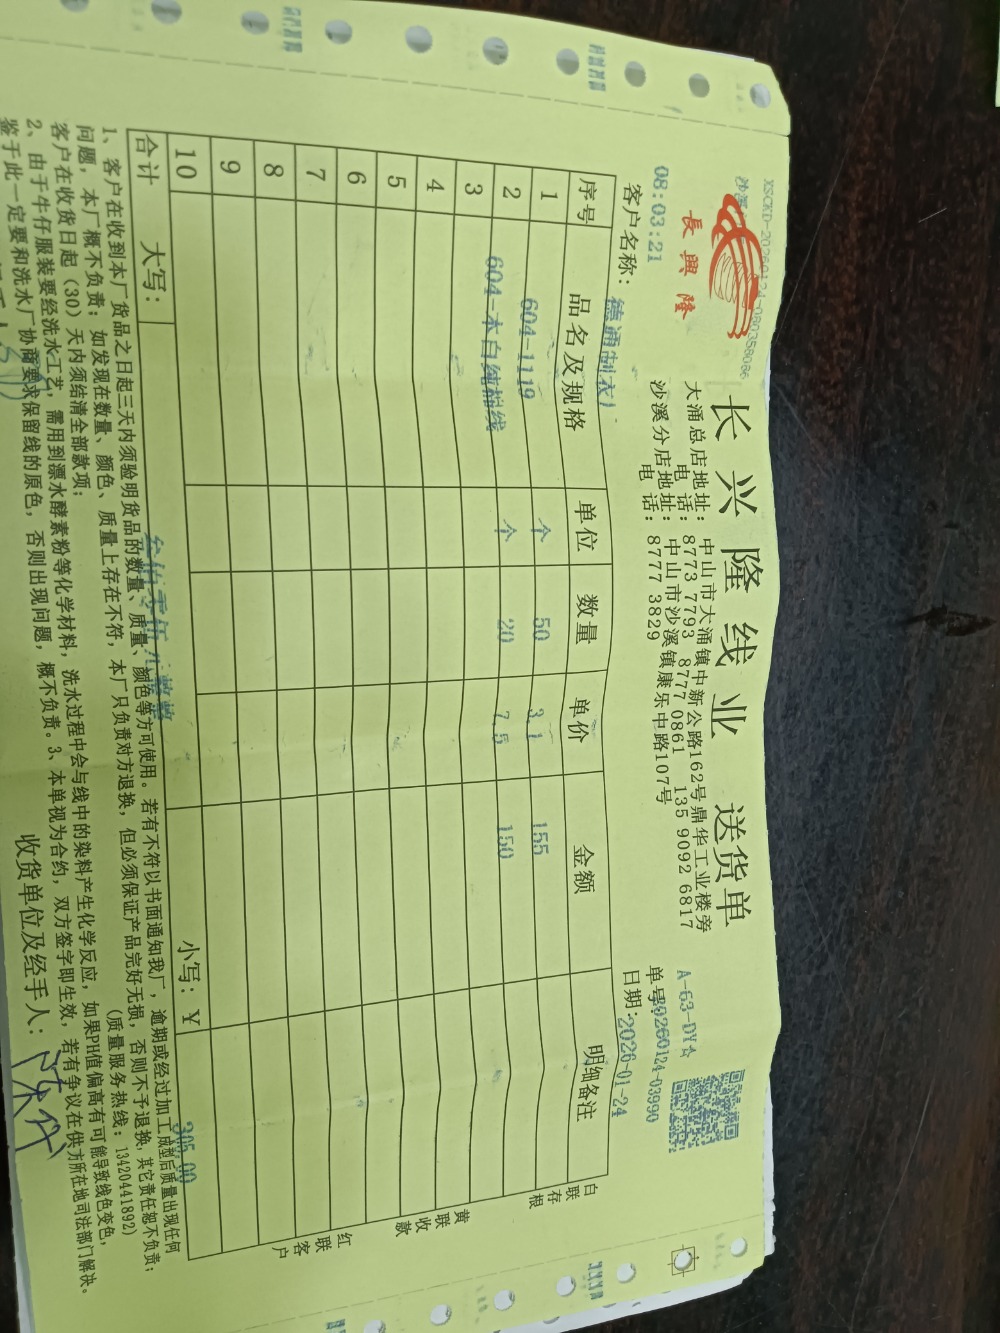 XSCKD-20260124-080358086
長興隆
长兴隆线业 送货单
大涌总店地址：中山市大涌镇中新公路162号鼎华工业楼旁
电 话：8773 7793 8777 0861 135 9092 6817
沙溪分店地址：中山市沙溪镇康乐中路107号
电 话：8777 3829
A-63-DY☆
单号：20260124-03990
08:03:21
客户名称：德通制衣厂
日期：2026-01-24
序号 品名及规格 单位 数量 单价 金额 明细备注
1 604-1119 个 50 3.1 155
2 604-本白纯棉线 个 20 7.5 150
3
4
5
6
7
8
9
10
合计 大写：叁佰零伍元整 小写：￥305.00
白联存根
黄联收款
红联客户
1、客户在收到本厂货品之日起三天内须验明货品的数量、质量、颜色等方可使用。若有不符以书面通知我厂，逾期或经过加工成型后质量出现任何
问题，本厂概不负责；如发现在数量、颜色、质量上存在不符，本厂只负责对方退换，但必须保证产品完好无损，否则不予退换，其它责任恕不负责；
客户在收货日起（30）天内须结清全部款项；
（质量服务热线：13420441892）
2、由于牛仔服装要经洗水工艺，需用到漂水酵素粉等化学材料，洗水过程中会与线中的染料产生化学反应，如果PH值偏高有可能导致线色变色，
鉴于此一定要和洗水厂协商要求保留线的原色，否则出现问题，概不负责。3、本单视为合约，双方签字即生效，若有争议在供方所在地司法部门解决。
收货单位及经手人：